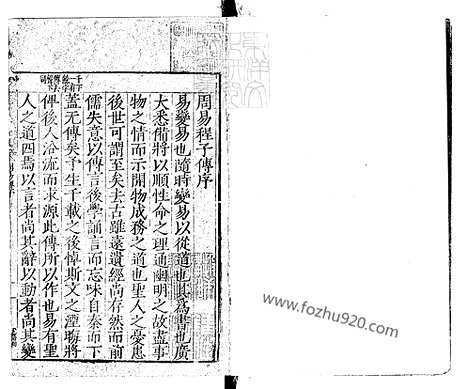 周易程子傳序
易變易也隨時變易以從道也其為書也廣
大悉備將以順性命之理通幽明之故盡事
物之情而示開物成務之道也聖人之憂患
後世可謂至矣去古雖遠遺經尚存然而前
儒失意以傳言後學誦言而忘味自秦而下
蓋无傳矣予生千載之後悼斯文之湮晦將
俾後人沿流而求源此傳所以作也易有聖
人之道四焉以言者尚其辭以動者尚其變
www.fozhu920.com